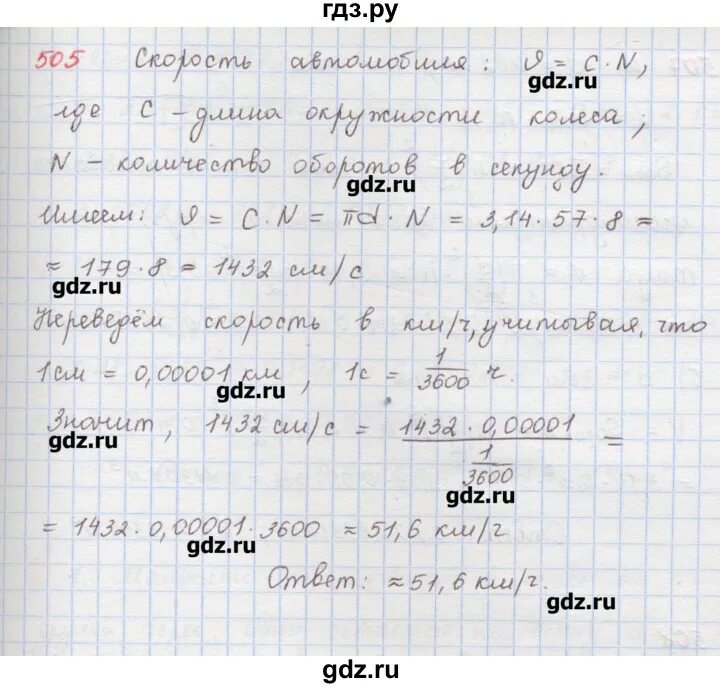 гдз.ру
505 Скорость автомобиля: υ = C·N,
gdz.ru
где C – длина окружности колеса;
N – количество оборотов в секунду.
gdz.ru
Имеем: υ = C·N = πd·N = 3,14·57·8 =
≈ 179·8 = 1432 см/с
gdz.ru
Переведём скорость в км/ч, учитывая, что
1см = 0,00001 км, 1с = 1/3600 ч.
gdz.ru
Значит, 1432 см/с = (1432·0,00001)/(1/3600) =
gdz.ru
gdz.ru
= 1432·0,00001·3600 ≈ 51,6 км/ч
gdz.ru
Ответ: ≈51,6 км/ч.
gdz.ru
gdz.ru